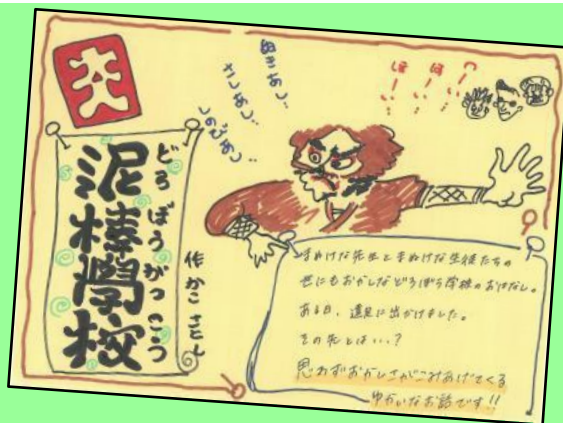 泥棒學校
どろぼうがっこう
作 かこ さとし
ぬきあし‥
さしあし‥
しのびあし‥
はーい‥
まぬけな先生とまぬけな生徒たちの
世にもおかしなどろぼう学校のおはなし。
ある日、遠足に出かけました。
その先とは‥?
思わずおかしさがこみあげてくる
ゆかいなお話です!!